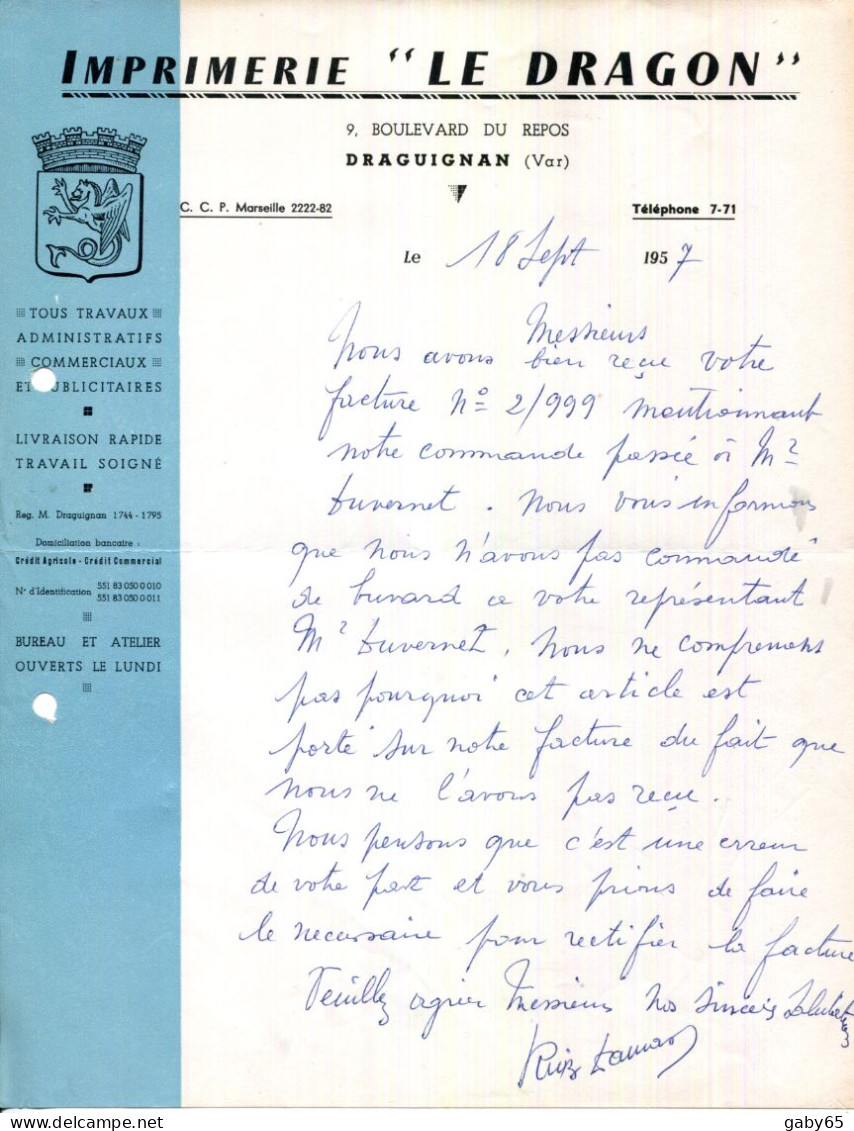 IMPRIMERIE "LE DRAGON"
9, BOULEVARD DU REPOS
DRAGUIGNAN (Var)
C. C. P. Marseille 2222-82
Téléphone 7-71
Le 18 Sept 1957
TOUS TRAVAUX
ADMINISTRATIFS
COMMERCIAUX
ET PUBLICITAIRES
LIVRAISON RAPIDE
TRAVAIL SOIGNÉ
Reg. M. Draguignan 1744 - 1795
Domiciliation bancaire :
Crédit Agricole - Crédit Commercial
N° d'Identification 551 83 050 0 010
551 83 050 0 011
BUREAU ET ATELIER
OUVERTS LE LUNDI
Messieurs
Nous avons bien reçu votre
facture N° 2/999 mentionnant
notre commande passée à Mr
Duvernet. Nous vous informons
que nous n'avons pas commandé
de buvard a votre représentant
Mr Duvernet. Nous ne comprenons
pas pourquoi cet article est
porté sur notre facture du fait que
nous ne l'avons pas reçu.
Nous pensons que c'est une erreur
de votre part et vous prions de faire
le necessaire pour rectifier la facture
Veuillez agréer Messieurs nos sincères Salutations
gaby65